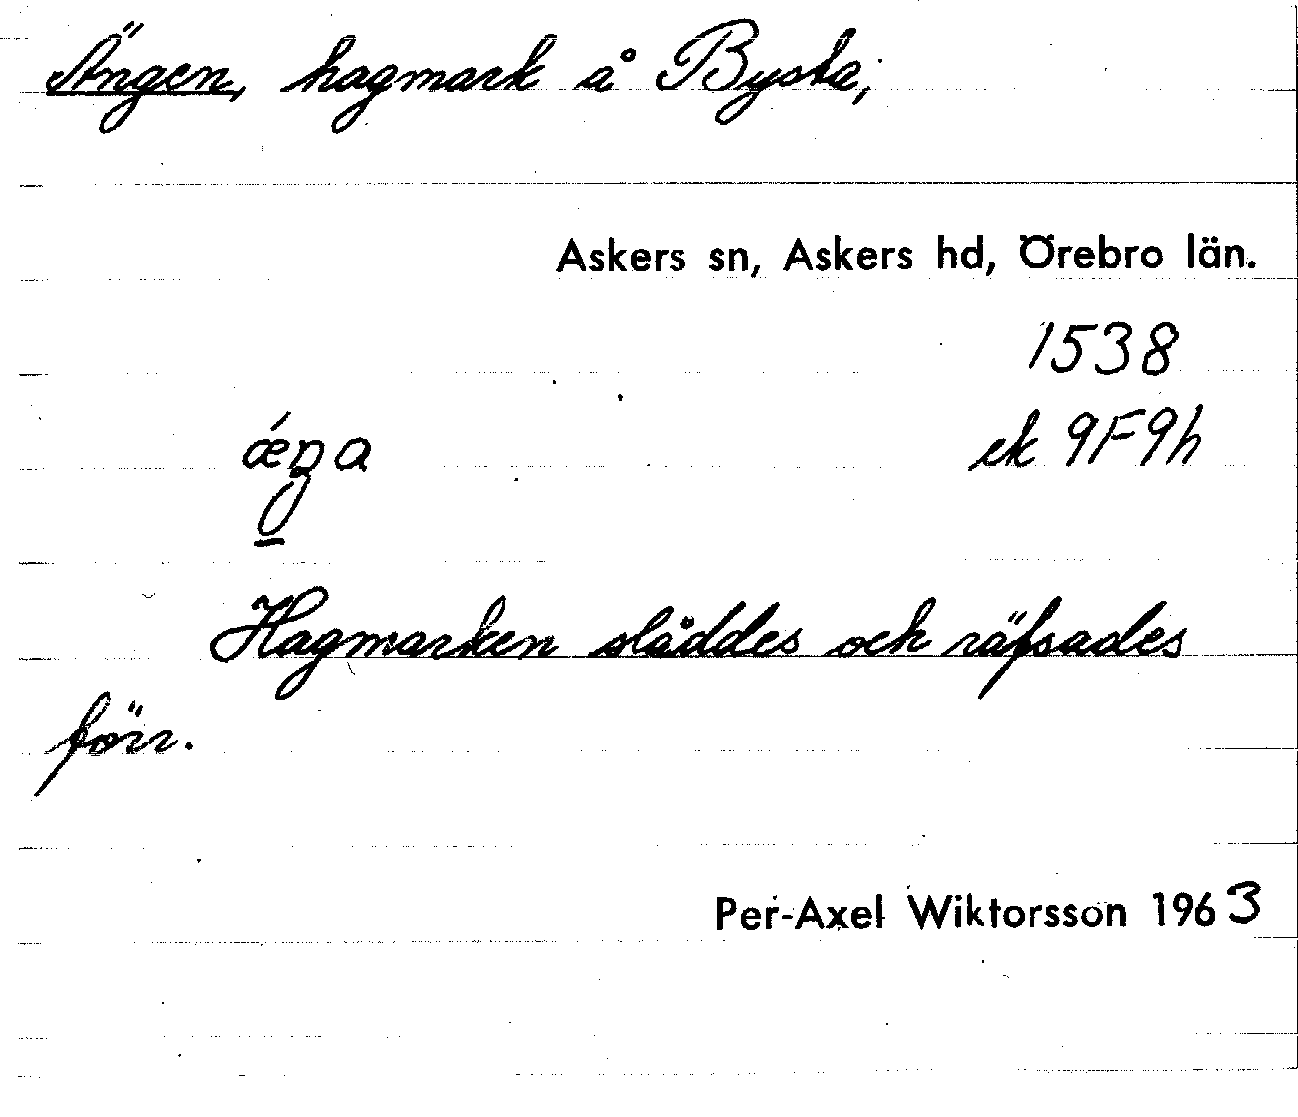 Ängen, hagmark å Bysta,
Askers sn, Askers hd, Örebro län.
1538
ek 9F9h
Hagmarken slåddes och räfsades
förr.
Per-Axel Wiktorsson 1963